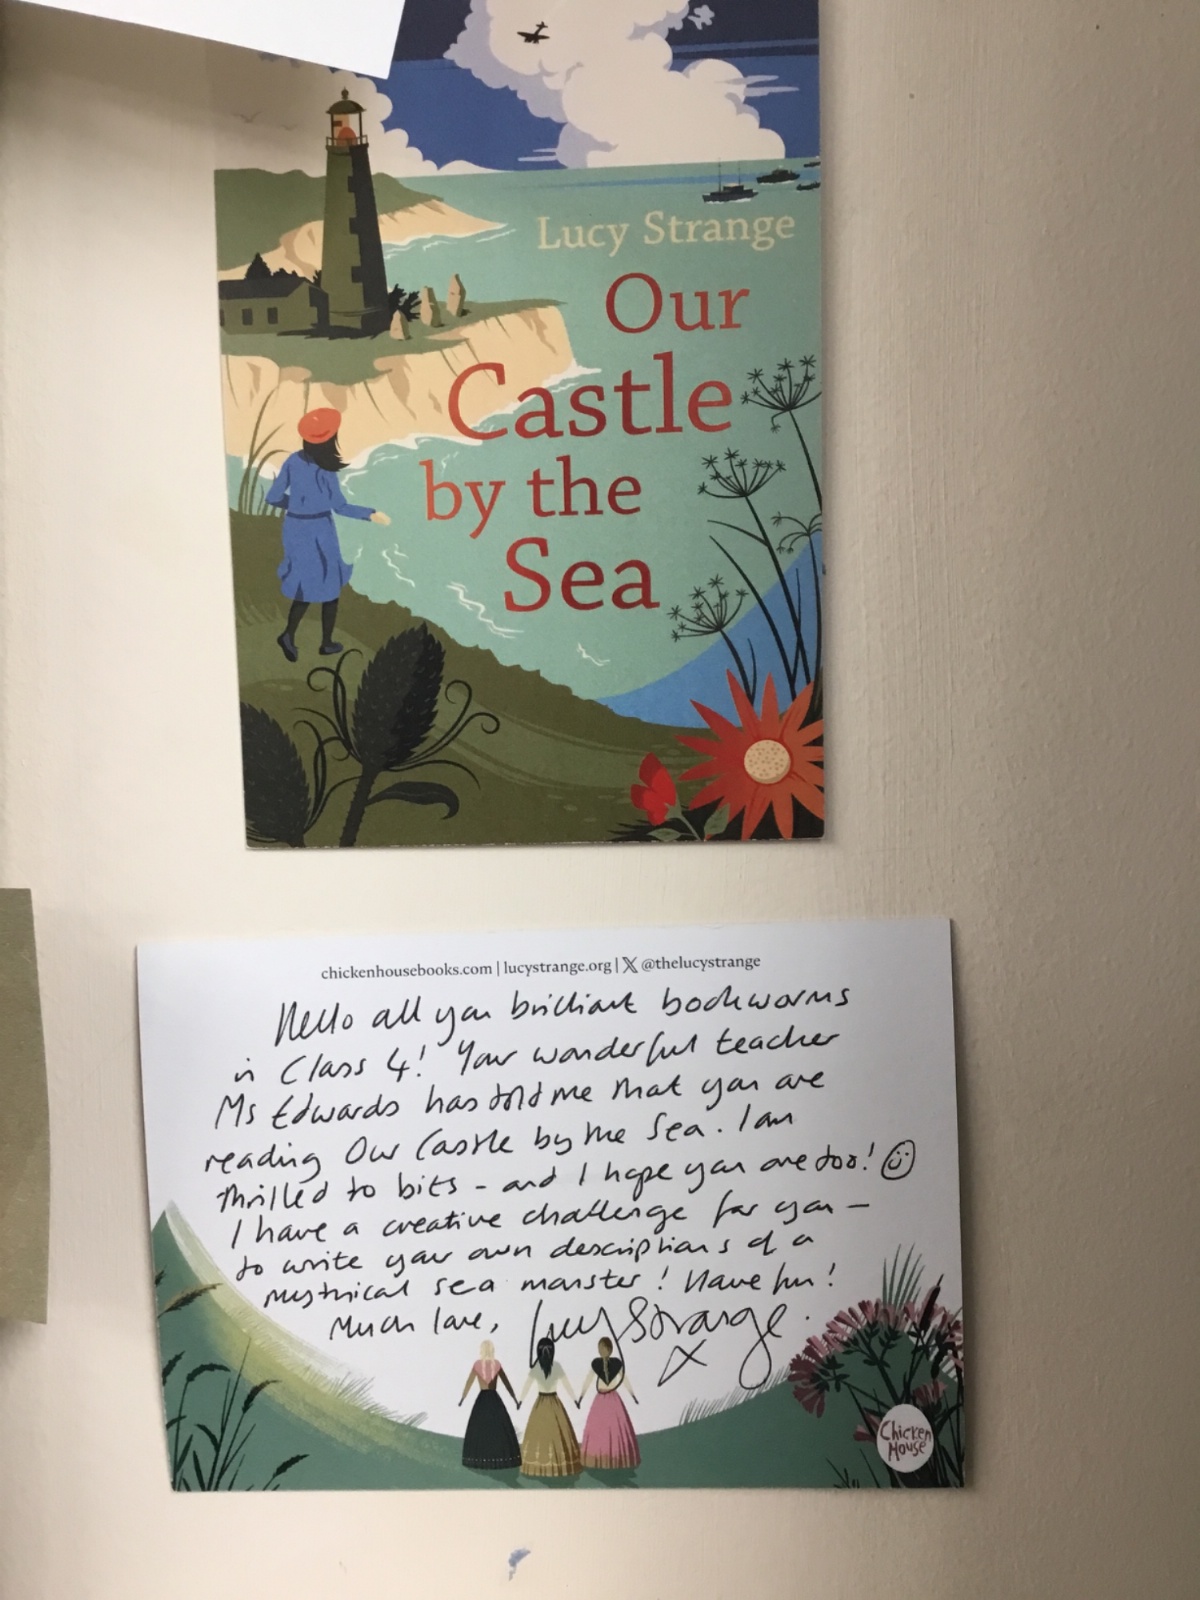 Lucy Strange
Our
Castle
by the
Sea
chickenhousebooks.com | lucystrange.org | X @thelucystrange
Hello all you brilliant bookworms
in Class 4! Your wonderful teacher
Ms Edwards has told me that you are
reading Our Castle by the Sea. I am
thrilled to bits - and I hope you are too! ☺
I have a creative challenge for you -
to write your own descriptions of a
mythical sea monster! Have fun!
Much love, Lucy Strange.
x
Chicken
House